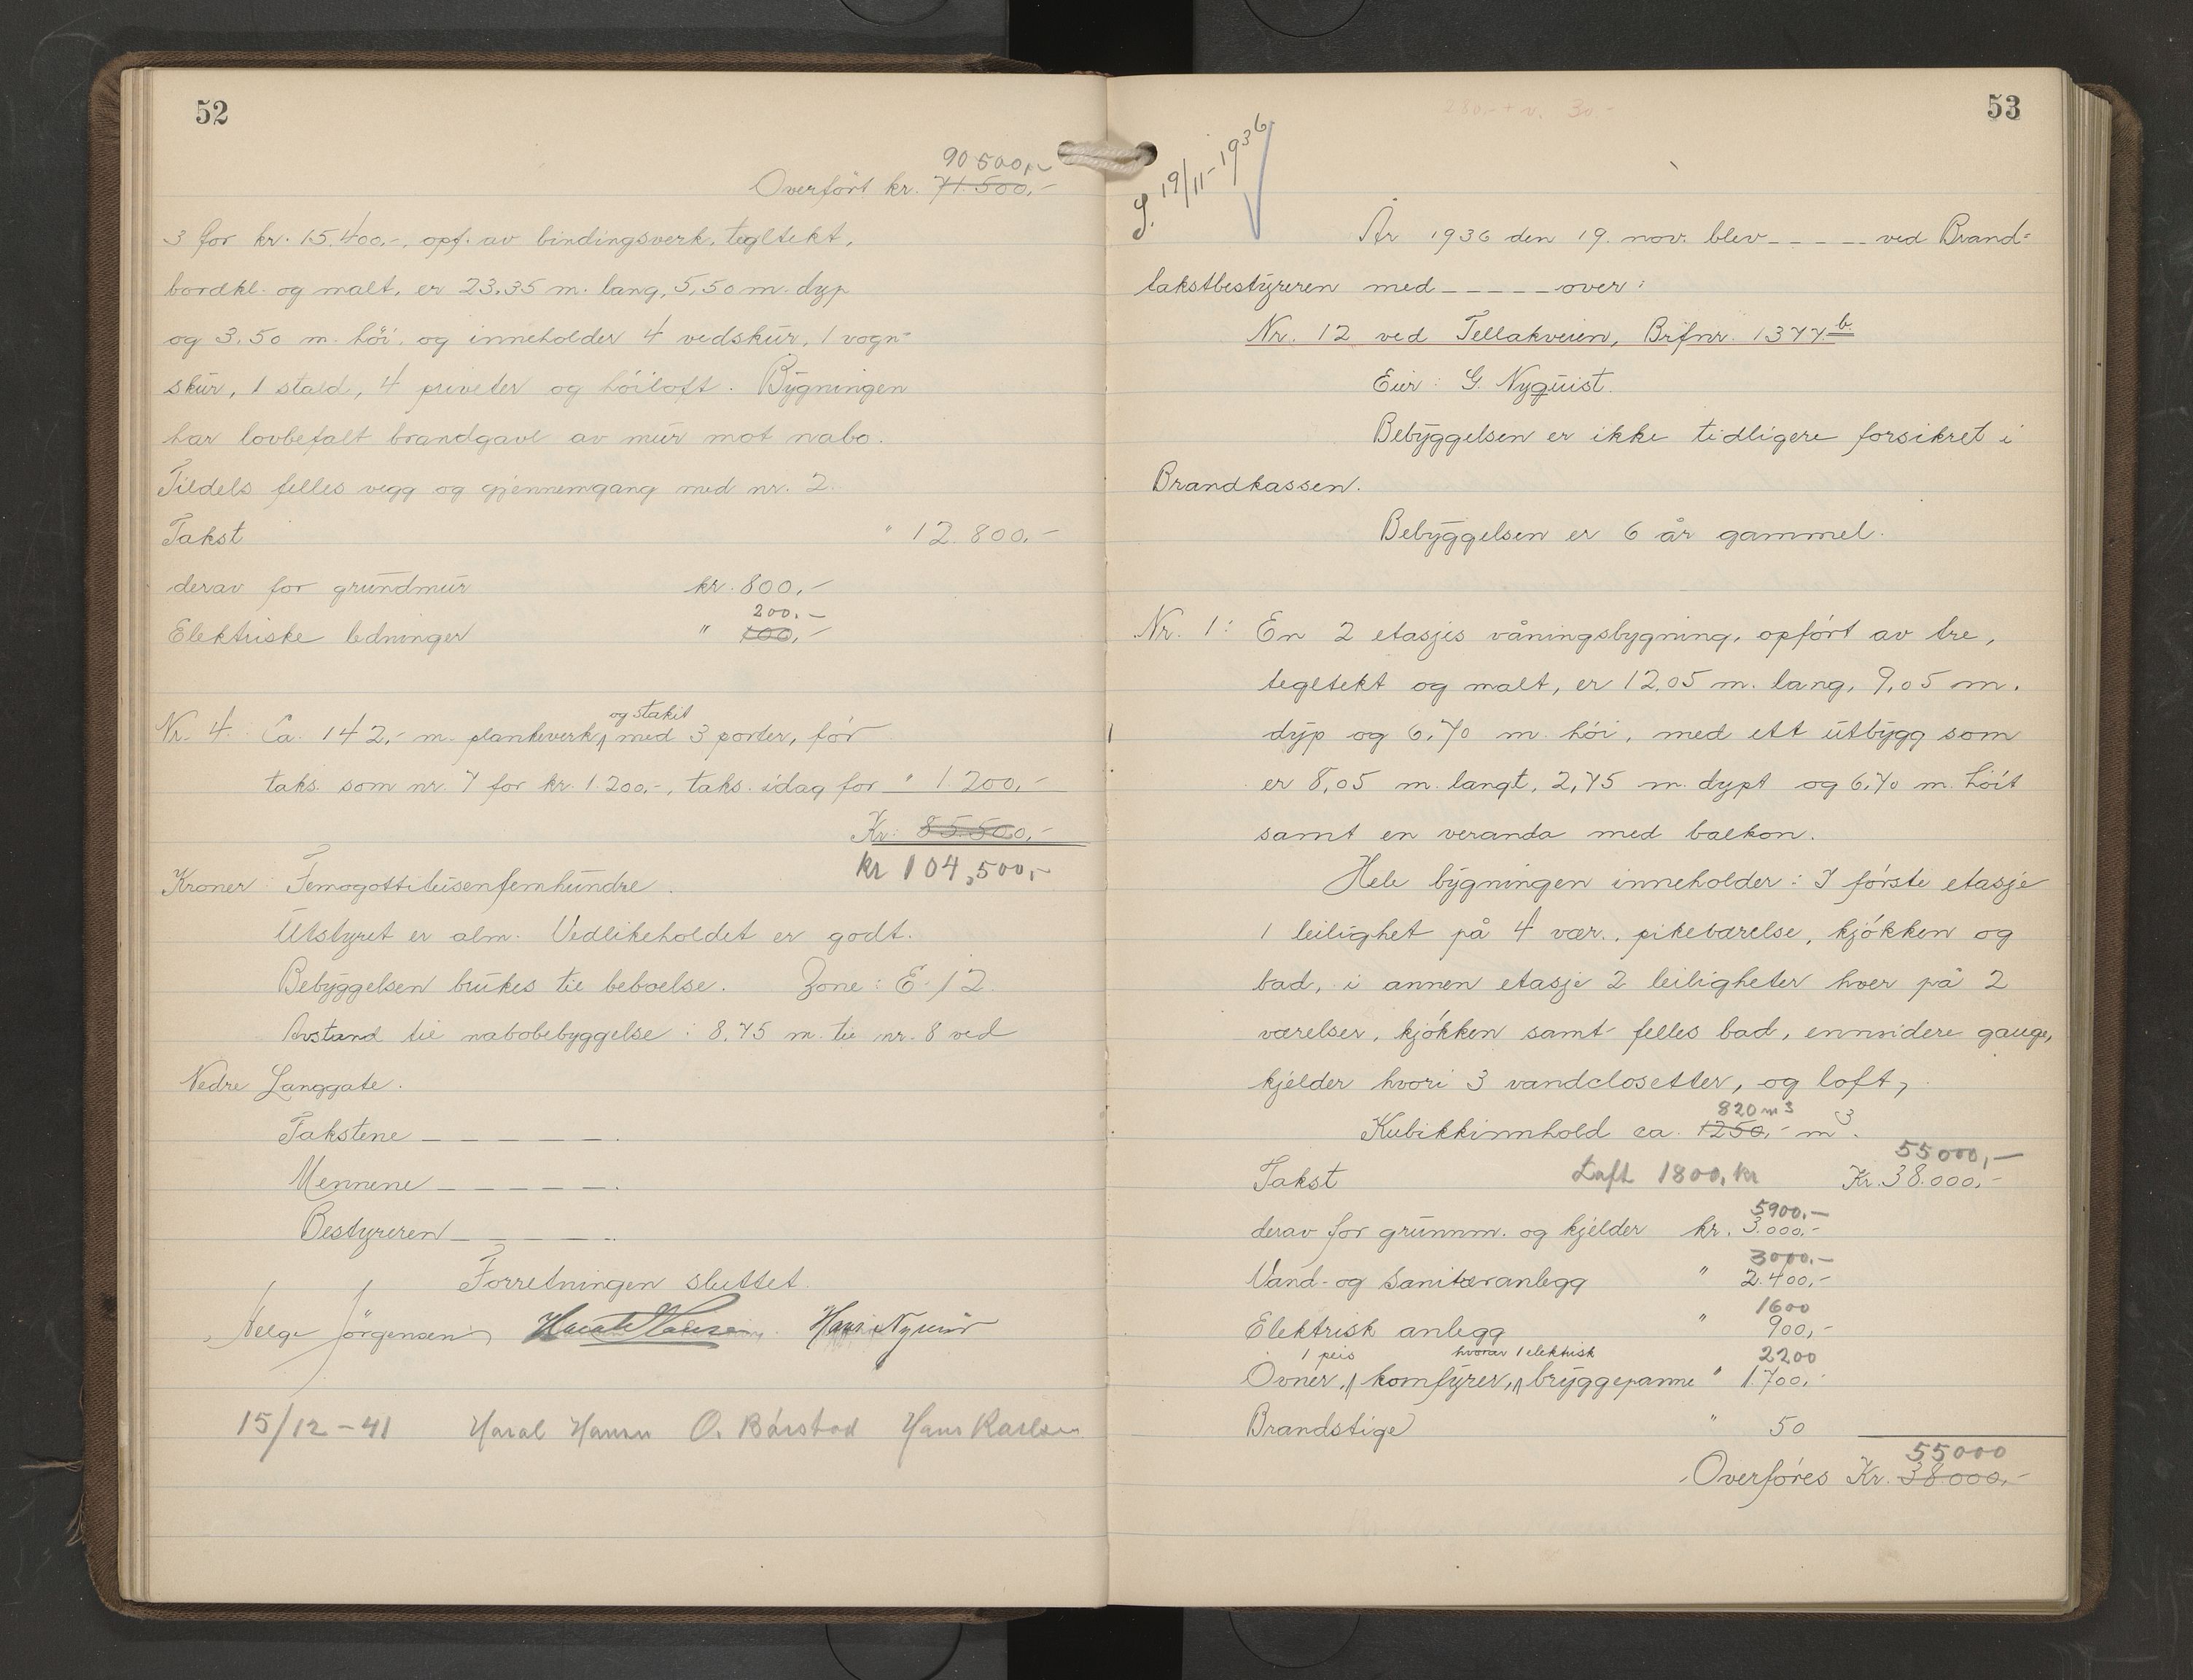 52
90500,-
Overført kr. 71.500,-
3 for kr. 15.400,-, opf. av bindingsverk, tegltekt,
bordkl. og malt, er 23,35 m. lang, 5,50 m. dyp
og 3,50 m. höi, og inneholder 4 vedskur, 1 vogn-
skur, 1 stald, 4 priveter og höiloft. Bygningen
har lovbefalt brandgavl av mur mot nabo.
Tildels felles vegg og gjennemgang med nr. 2.
Takst " 12.800,-
derav for grundmur kr. 800,-
200,-
Elektriske ledninger " 100,-
og stakit
Nr. 4. Ca. 142,- m. plankeverk, med 3 porter, før
taks. som nr. 7 for kr. 1.200,-, taks. idag for " 1.200,-
Kr. 85.500,-
kr 104,500,-
Kroner: Femogottitusenfemhundre.
Utstyret er alm. Vedlikeholdet er godt.
Bebyggelsen brukes til beboelse. Zone: E. 12.
Avstand til nabobebyggelse: 8,75 m. til nr. 8 ved
Nedre Langgate.
Takstene _ _ _ _ _ .
Mennene _ _ _ _ _ .
Bestyreren _ _ _ _ _ .
Forretningen sluttet.
Helge Jörgensen Hans
15/12-41 Haral Hansen O. Bårstad Hans Karlsen
53
280.- + v. 30.-
S. 19/11-1936
År 1936 den 19. nov. blev _ _ _ _ _ ved Brand-
takstbestyreren med _ _ _ _ _ over:
Nr. 12 ved Tellakveien, Brfnr. 1377 b.
Eier: G. Nyquist.
Bebyggelsen er ikke tidligere forsikret i
Brandkassen.
Bebyggelsen er 6 år gammel.
Nr. 1: En 2 etasjes våningsbygning, opført av tre,
tegltekt og malt, er 12,05 m. lang, 9,05 m.
dyp og 6,70 m. höi, med ett utbygg som
er 8,05 m. langt, 2,75 m. dypt og 6,70 m. höit
samt en veranda med balkon.
Hele bygningen inneholder: I første etasje
1 leilighet på 4 vær., pikeværelse, kjøkken og
bad, i annen etasje 2 leiligheter hver på 2
værelser, kjøkken samt felles bad, ennvidere gange,
kjelder hvori 3 vandclosetter, og loft,
820 m3
Kubikkinnhold ca. 1250,- m3.
55000,-
Takst Luft 1800, kr Kr. 38.000,-
5900,-
derav for grunnm. og kjelder kr. 3.000,-
3000,-
Vand- og sanitæranlegg " 2.400,-
1600
Elektrisk anlegg " 900,-
1 peis hvorav 1 elektrisk 2200
Ovner, komfyrer, bryggepanne " 1.700,-
Brandstige " 50
55000
Overføres Kr. 38.000,-